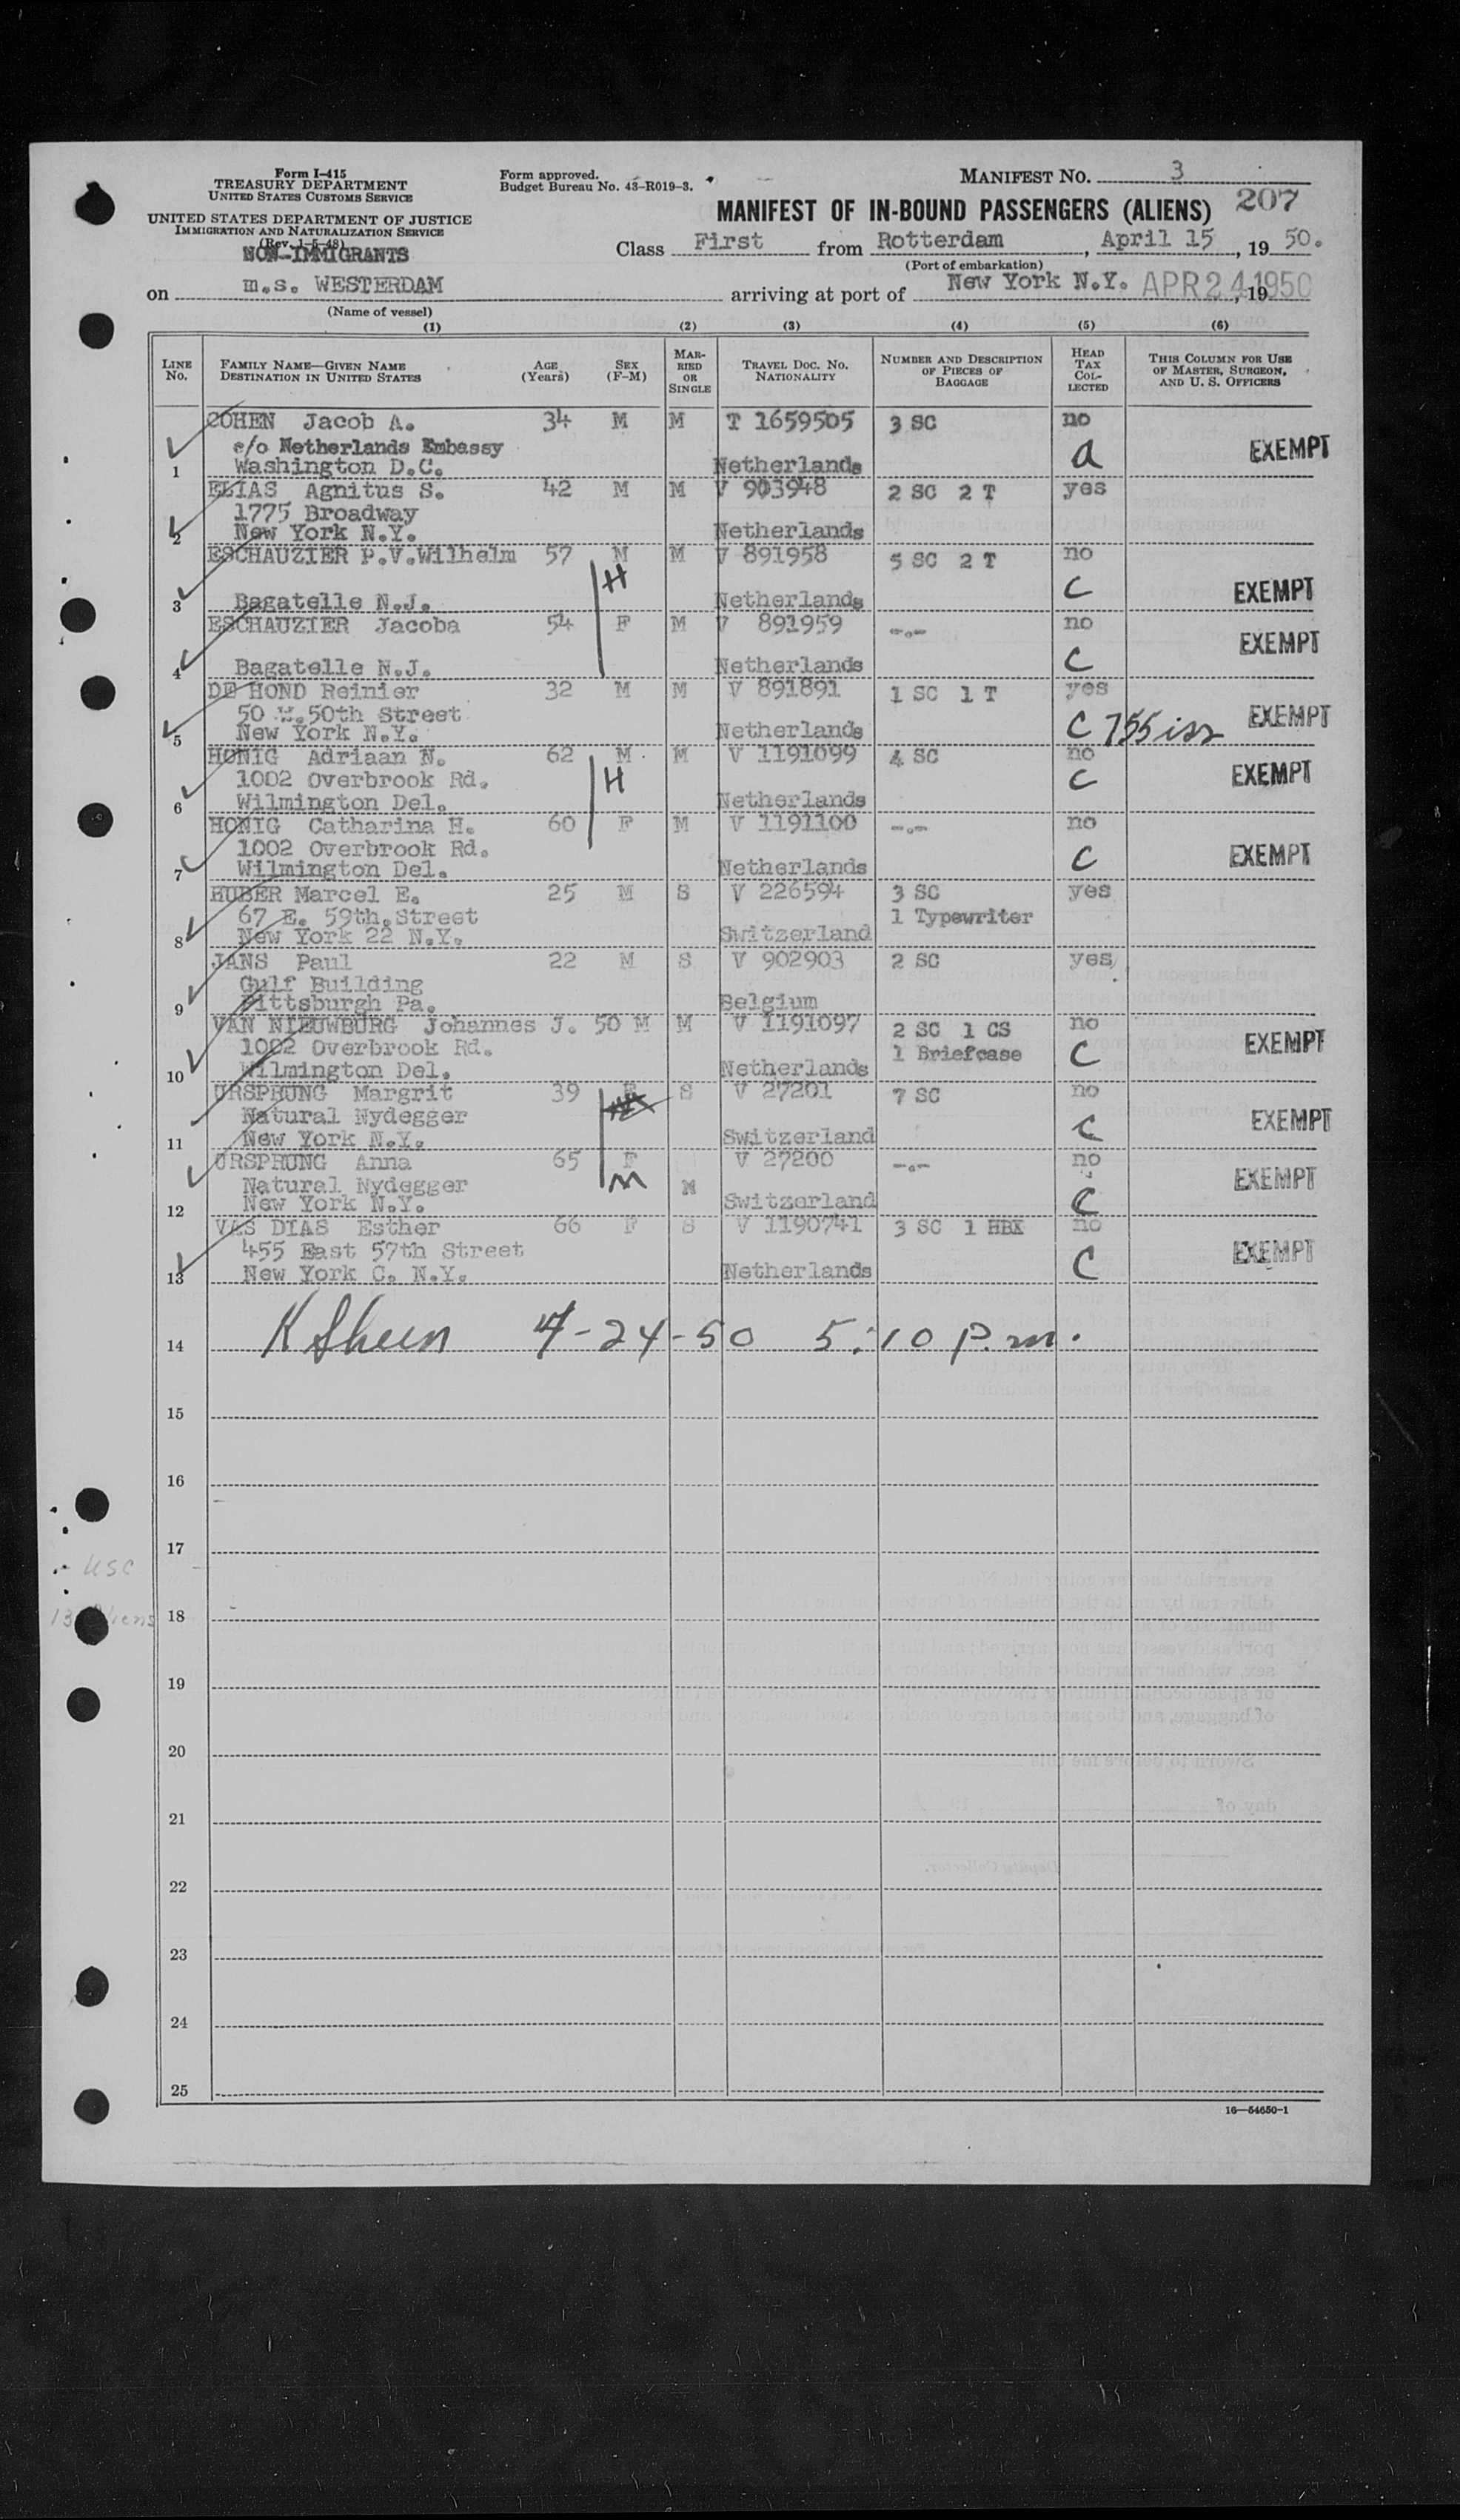 Form I-415
TREASURY DEPARTMENT
UNITED STATES CUSTOMS SERVICE
UNITED STATES DEPARTMENT OF JUSTICE
IMMIGRATION AND NATURALIZATION SERVICE
(Rev. 1-5-48)
NON-IMMIGRANTS
Form approved.
Budget Bureau No. 43-R019-3.
MANIFEST No. 3
MANIFEST OF IN-BOUND PASSENGERS (ALIENS) 207
Class First from Rotterdam, April 15, 19 50.
(Port of embarkation)
on m.s. WESTERDAM arriving at port of New York N.Y. APR 24 1950, 19
(Name of vessel)
(1) (2) (3) (4) (5) (6)
LINE No. FAMILY NAME—GIVEN NAME DESTINATION IN UNITED STATES AGE (Years) SEX (F-M) MARRIED OR SINGLE TRAVEL DOC. NO. NATIONALITY NUMBER AND DESCRIPTION OF PIECES OF BAGGAGE HEAD TAX COLLECTED THIS COLUMN FOR USE OF MASTER, SURGEON, AND U. S. OFFICERS
COHEN Jacob A. 34 M M T 1659505 3 SC no
c/o Netherlands Embassy a EXEMPT
1 Washington D.C. Netherlands
ELIAS Agnitus S. 42 M M V 903948 2 SC 2 T yes
1775 Broadway
2 New York N.Y. Netherlands
ESCHAUZIER P.V.Wilhelm 57 M M V 891958 5 SC 2 T no
H
3 Bagatelle N.J. Netherlands C EXEMPT
ESCHAUZIER Jacoba 54 F M V 891959 -.- no
4 Bagatelle N.J. Netherlands C EXEMPT
DE HOND Reinier 32 M M V 891891 1 SC 1 T yes
50 W.50th Street
5 New York N.Y. Netherlands C 755 iss EXEMPT
HONIG Adriaan N. 62 M M V 1191099 4 SC no
1002 Overbrook Rd. H C EXEMPT
6 Wilmington Del. Netherlands
HONIG Catharina H. 60 F M V 1191100 -.- no
1002 Overbrook Rd. C EXEMPT
7 Wilmington Del. Netherlands
HUBER Marcel E. 25 M S V 226594 3 SC yes
67 E. 59th.Street 1 Typewriter
8 New York 22 N.Y. Switzerland
JANS Paul 22 M S V 902903 2 SC yes
Gulf Building
9 Pittsburgh Pa. Belgium
VAN NIEUWBURG Johannes J. 50 M M V 1191097 2 SC 1 CS no
1002 Overbrook Rd. 1 Briefcase C EXEMPT
10 Wilmington Del. Netherlands
URSPRUNG Margrit 39 F S V 27201 7 SC no
Natural Nydegger C EXEMPT
11 New York N.Y. Switzerland
URSPRUNG Anna 65 F V 27200 -.- no
Natural Nydegger m M EXEMPT
12 New York N.Y. Switzerland C
VAS DIAS Esther 66 F S V 1190741 3 SC 1 HBX no
455 East 57th Street C EXEMPT
13 New York C. N.Y. Netherlands
14 4-24-50 5:10 p.m.
15
16
17
usc
18
13 Aliens
19
20
21
22
23
24
25
16—54650-1